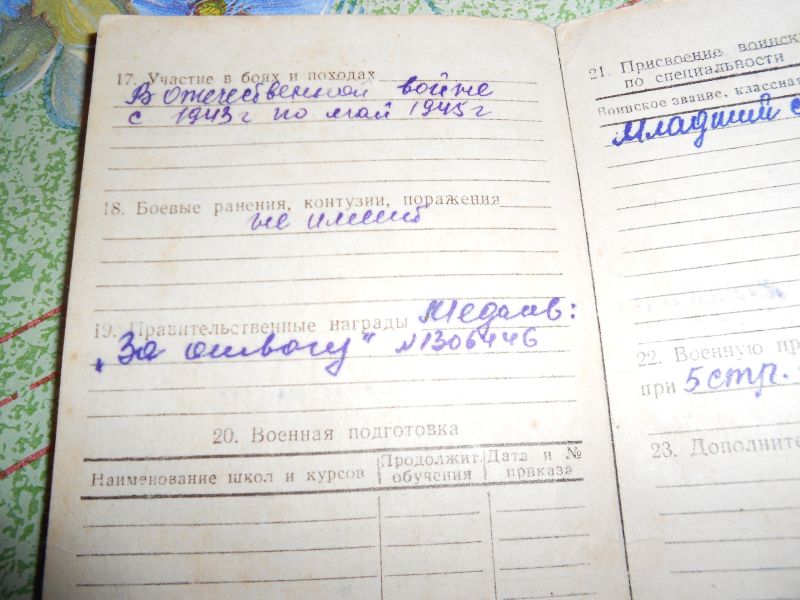 17. Участие в боях и походах
В отечественной войне
с 1943 г по май 1945 г
18. Боевые ранения, контузии, поражения
не имеет
19. Правительственные награды Медаль:
"За отвагу" N1306446
20. Военная подготовка
Наименование школ и курсов Продолжит. обучения Дата и № приказа
21. Присвоение воинск
по специальности
Воинское звание, классная
Младший с
22. Военную пр
при 5 стр.
23. Дополните